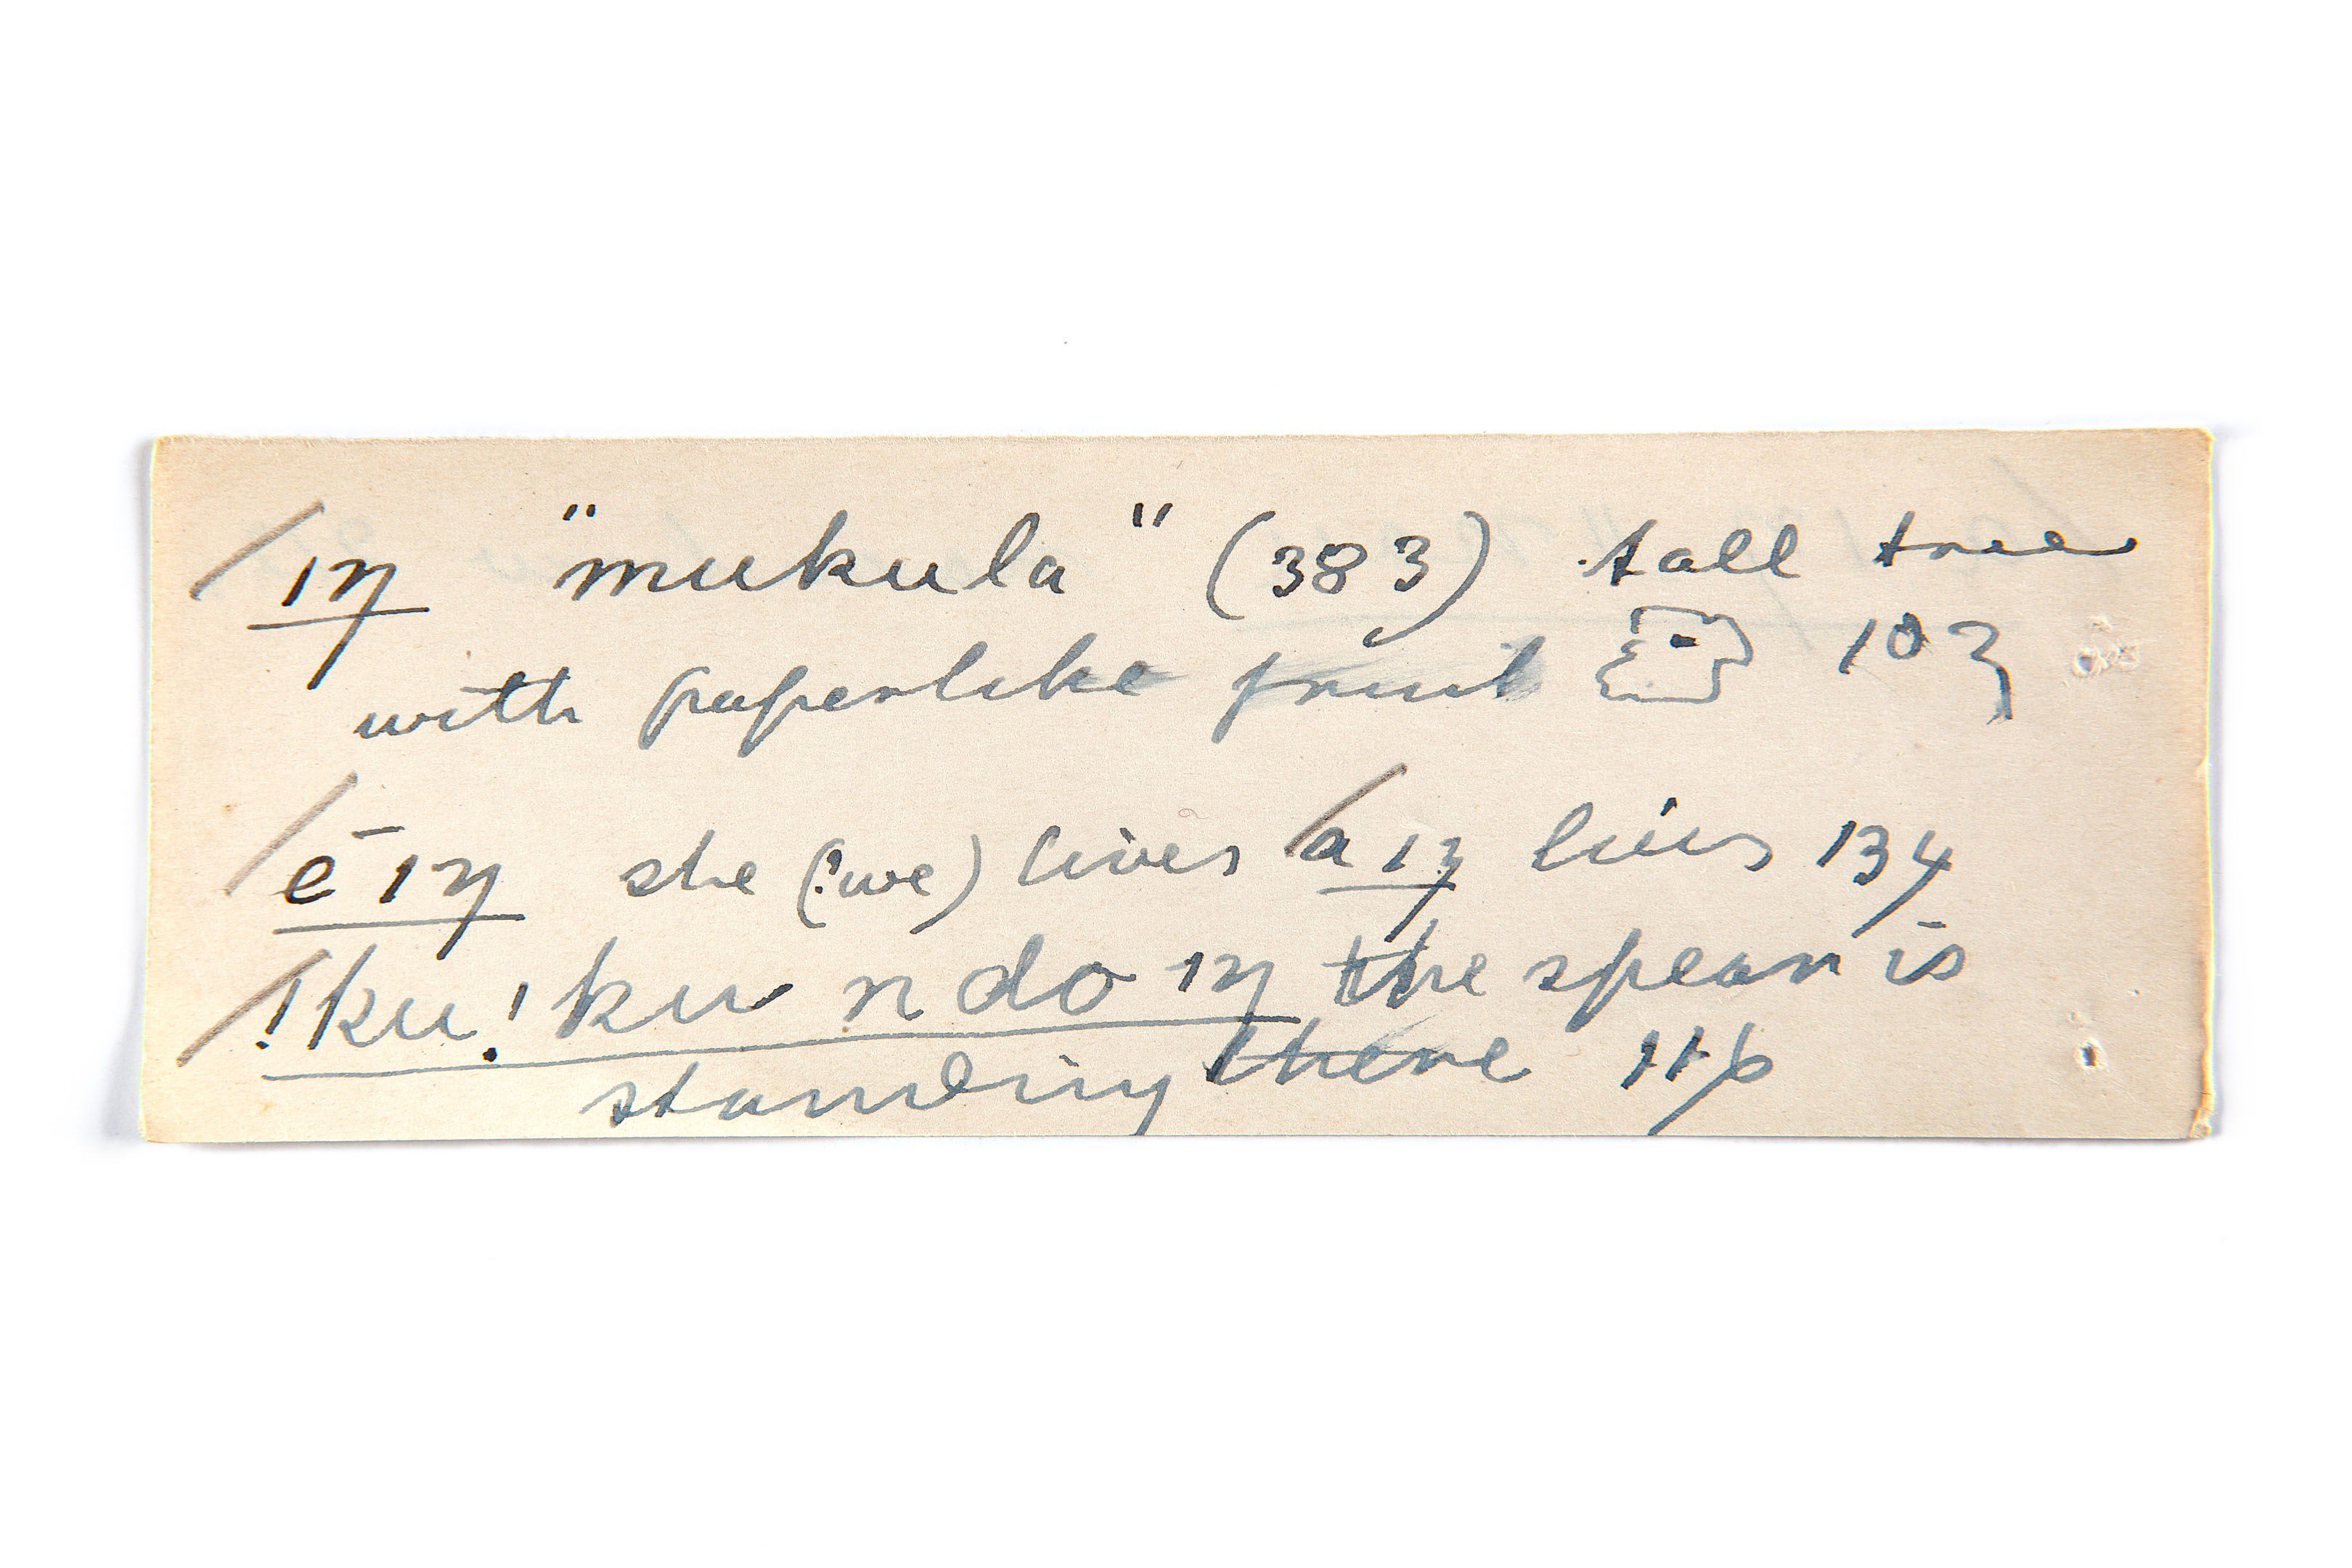 ıŋ "mukula" (383) tall tree
with paperlike fruit 103
ē ıŋ she (?we) lives a ıŋ lives 134
!ku!ku ndo ıŋ the spear is
standing there 116